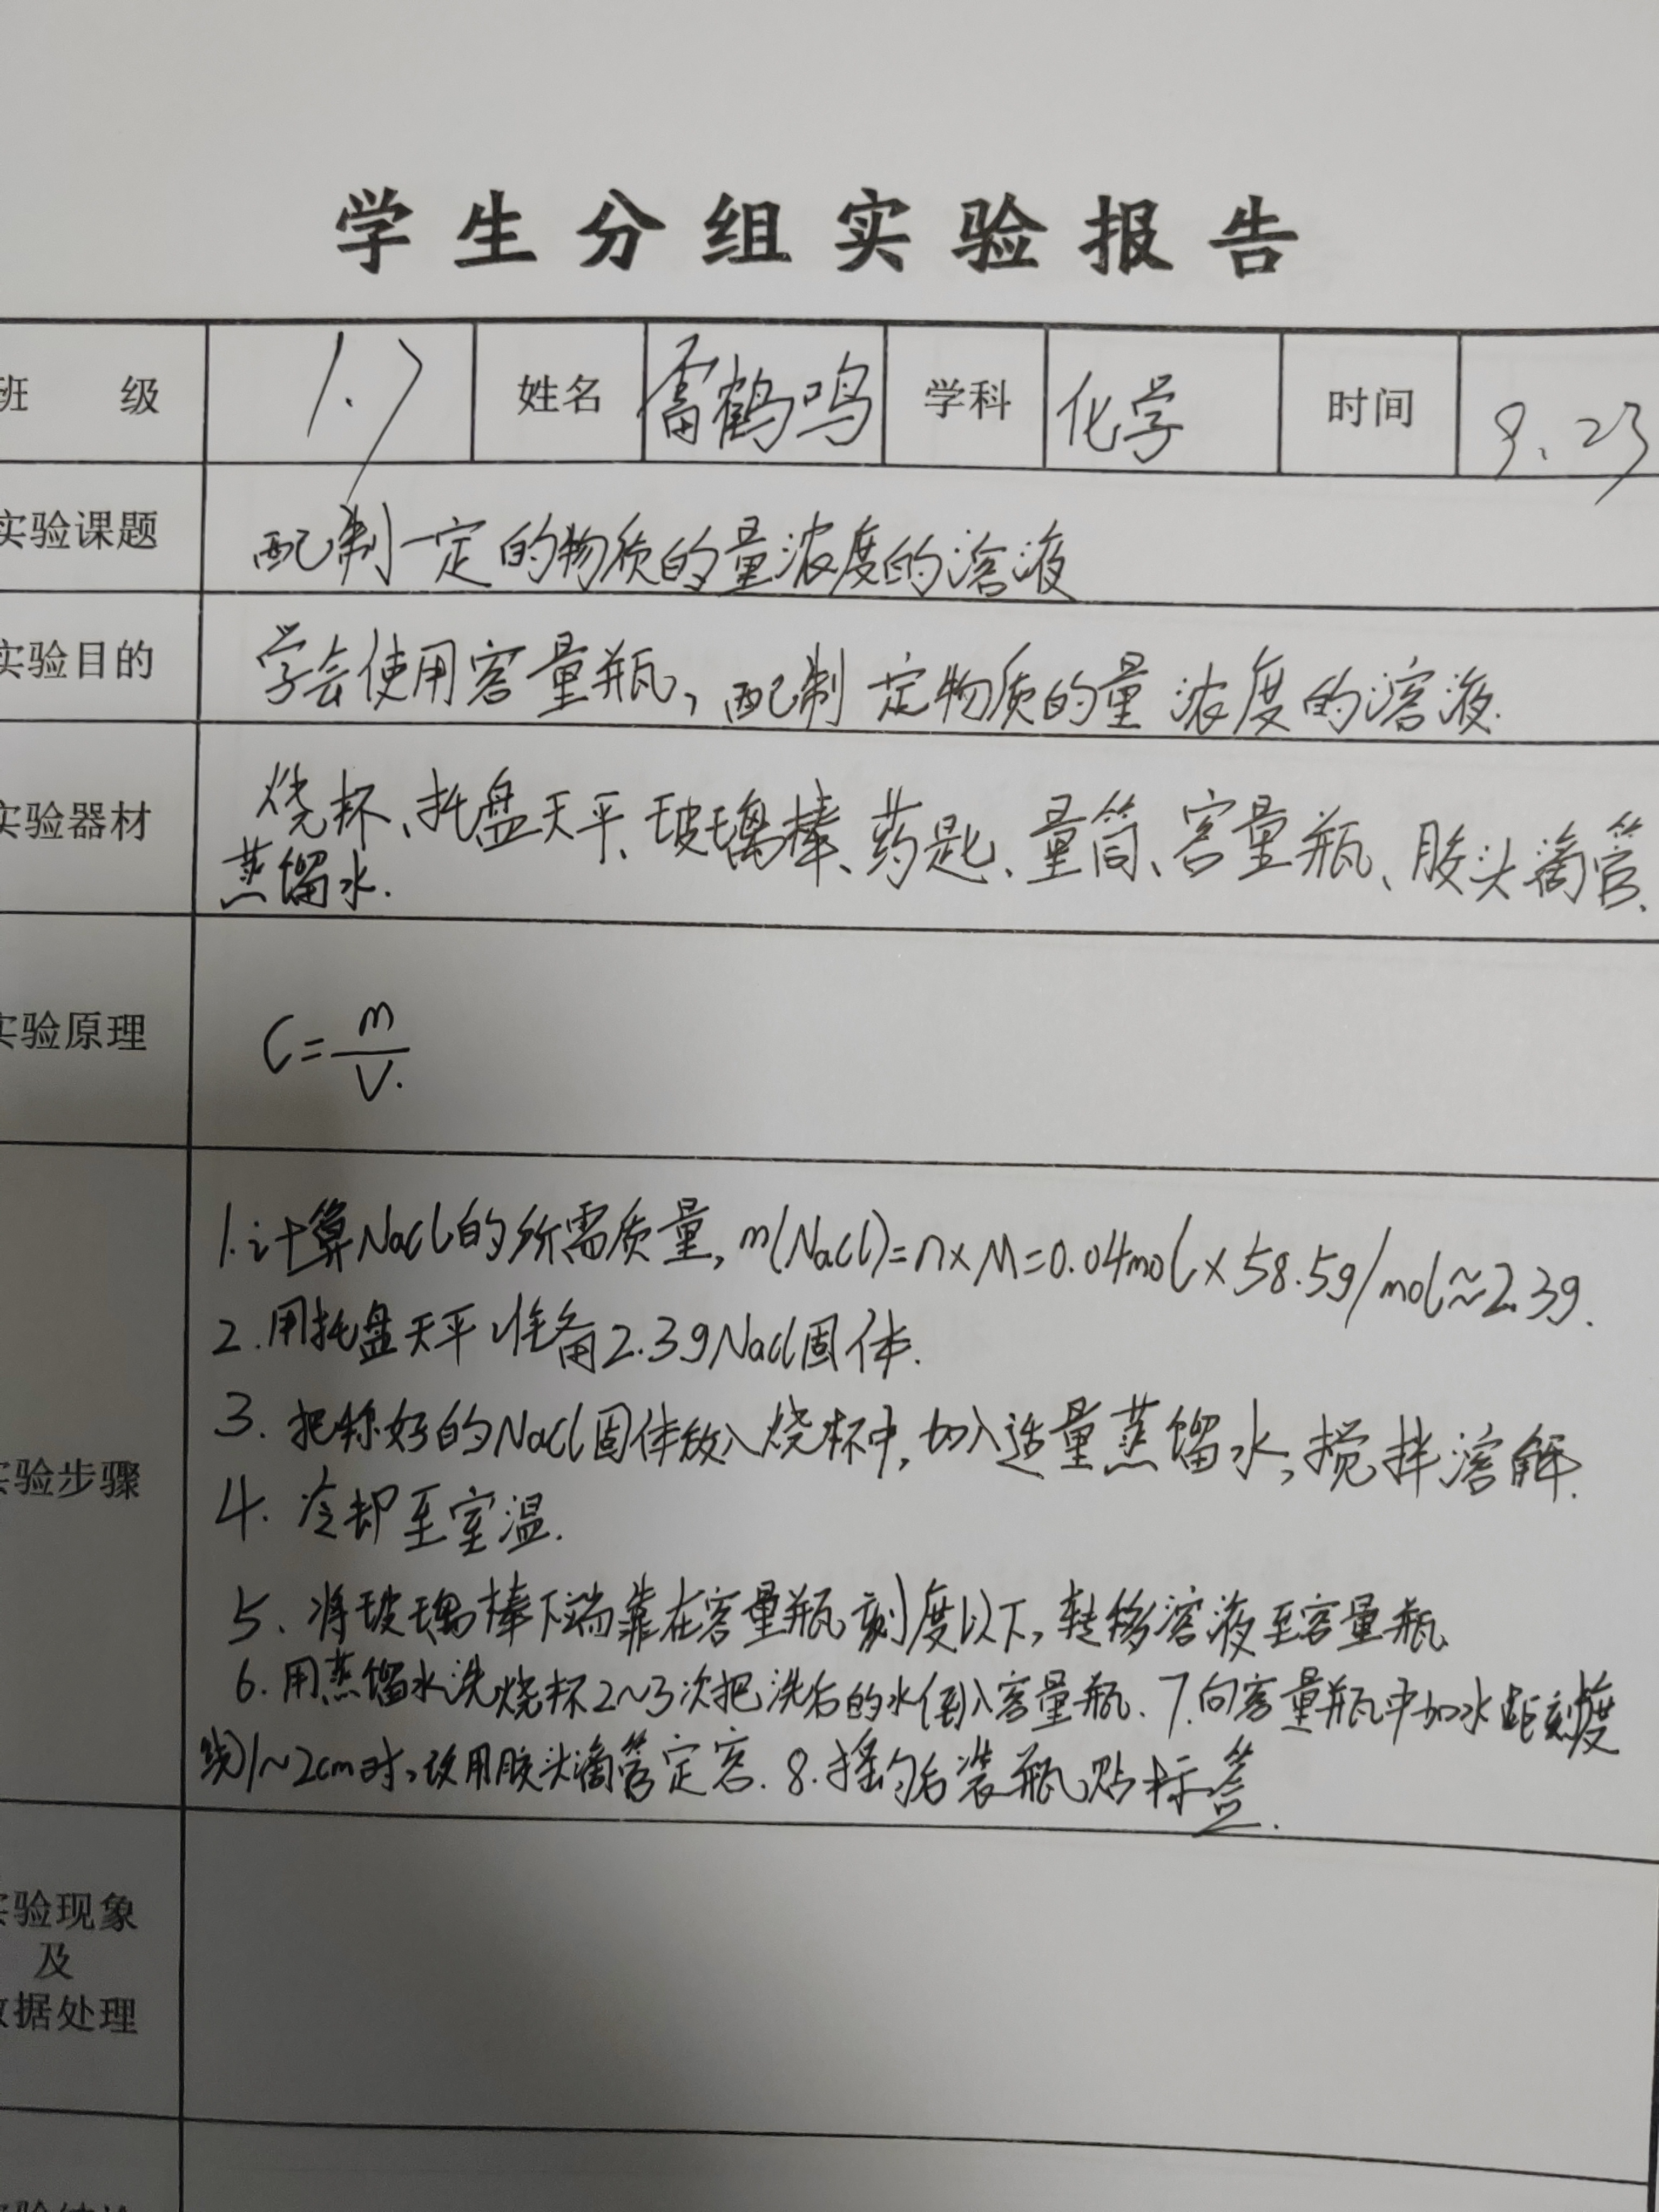 学生分组实验报告
班 级 1.7 姓名 雷鹤鸣 学科 化学 时间 9.23
实验课题 配制一定的物质的量浓度的溶液
实验目的 学会使用容量瓶,配制一定物质的量浓度的溶液.
实验器材 烧杯、托盘天平、玻璃棒、药匙、量筒、容量瓶、胶头滴管、
蒸馏水.
实验原理 C=m/V.
1.计算NaCl的所需质量,m(NaCl)=n×M=0.04mol×58.5g/mol≈2.3g.
2.用托盘天平准备2.3gNaCl固体.
3.把称好的NaCl固体放入烧杯中,加入适量蒸馏水,搅拌溶解.
实验步骤 4.冷却至室温.
5、将玻璃棒下端靠在容量瓶刻度以下,转移溶液至容量瓶
6.用蒸馏水洗烧杯2~3次把洗后的水倒入容量瓶.7.向容量瓶中加水距刻度
线1~2cm时,改用胶头滴管定容.8.摇匀后装瓶贴标签.
实验现象
及
数据处理